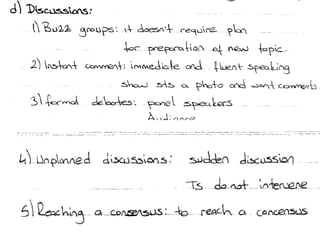 d) Discussions:
1) Buzz groups: it doesn't require plan
for preparation of new topic.
2) Instant comment: immediate and fluent speaking
show sts a photo and want comments
3) formal debates: panel speakers
Audience
4) Unplanned discussions: sudden discussion
Ts do not intervene
5) Reaching a consensus: to reach a concensus